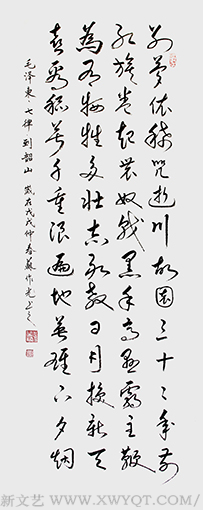 别梦依稀咒逝川故園三十二年前
红旗卷起農奴戟黑手高悬霸主鞭
為有牺牲多壮志敢教日月换新天
喜看稻菽千重浪遍地英雄下夕烟
毛泽東·七律到韶山 歲在戊戌仲春蘇作光书
新文艺 WWW.XWYQT.COM/